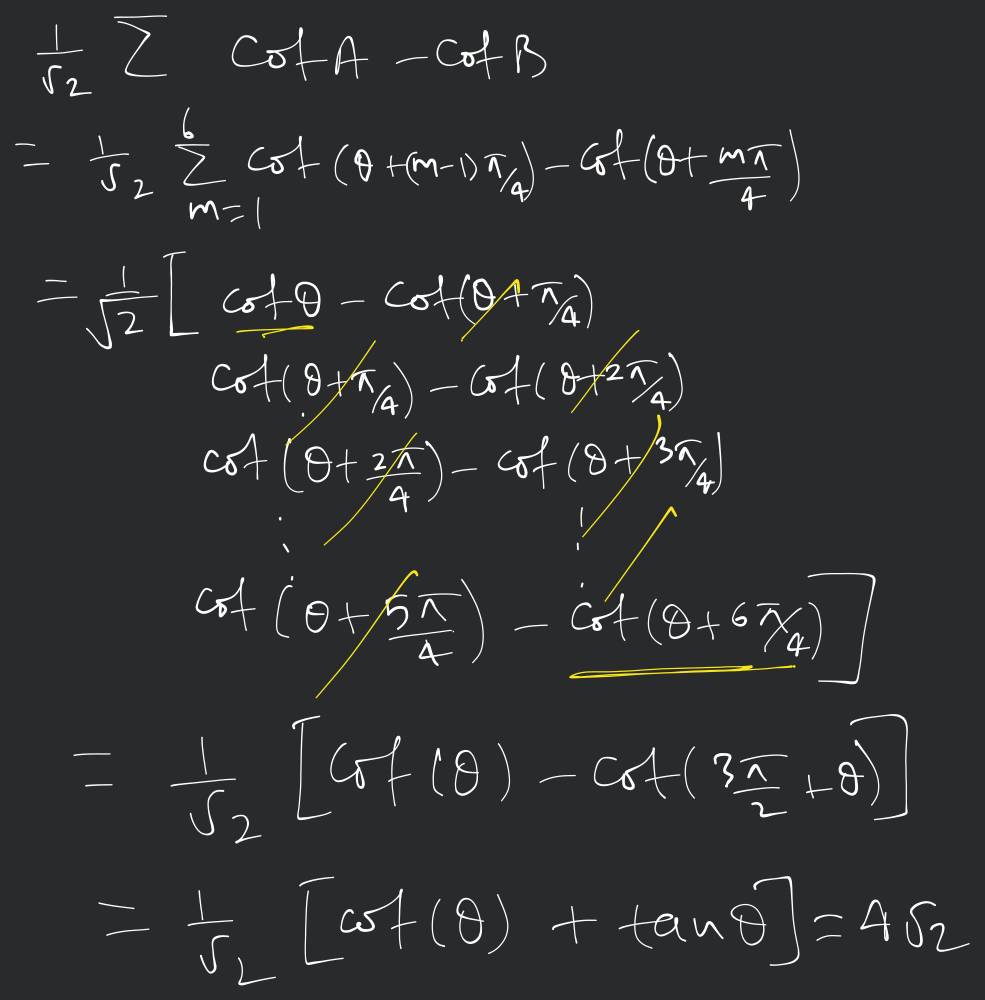 1/√2 Σ cot A - cot B
= 1/√2 Σ_{m=1}^{6} cot (θ + (m-1)π/4) - cot (θ + mπ/4)
= 1/√2 [ cot θ - cot (θ + π/4)
cot (θ + π/4) - cot (θ + 2π/4)
cot (θ + 2π/4) - cot (θ + 3π/4)
⋮ ⋮
cot (θ + 5π/4) - cot (θ + 6π/4) ]
= 1/√2 [ cot (θ) - cot (3π/2 + θ) ]
= 1/√2 [ cot (θ) + tan θ ] = 4√2